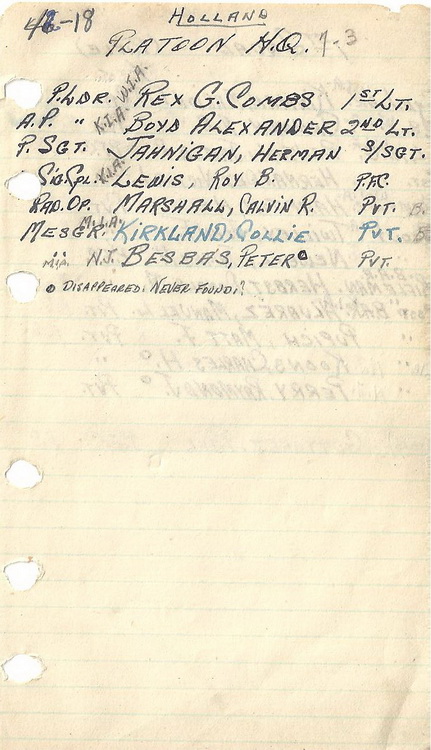 46-18 HOLLAND
PLATOON H.Q. 7-3
P.LDR. W.I.A. REX G. COMBS 1ST LT.
A.P. " K.I.A. BOYD ALEXANDER 2ND LT.
P. SGT. JAHNIGAN, HERMAN S/SGT.
Sig. Cpl. K.I.A. LEWIS, ROY B. P.F.C.
RAD. OP. MARSHALL, CALVIN R. PVT.
MESGR. M.I.A. KIRKLAND, COLLIE PVT.
" M.I.A. N.J. BESBAS, PETER PVT.
DISAPPEARED. NEVER FOUND!?